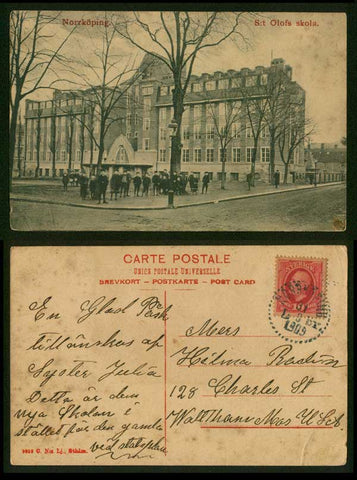 Norrköping.
S:t Olofs skola.
CARTE POSTALE
UNION POSTALE UNIVERSELLE
BREVKORT - POSTKARTE - POST CARD
SVERIGE
1909
En Glad Påsk
tillönskas af
Syster Julia
Detta är den
nya Skolan i
stället för den gamla
vid
Mrs
Hilma
128 Charles St
Waltham Mas U.S.A.